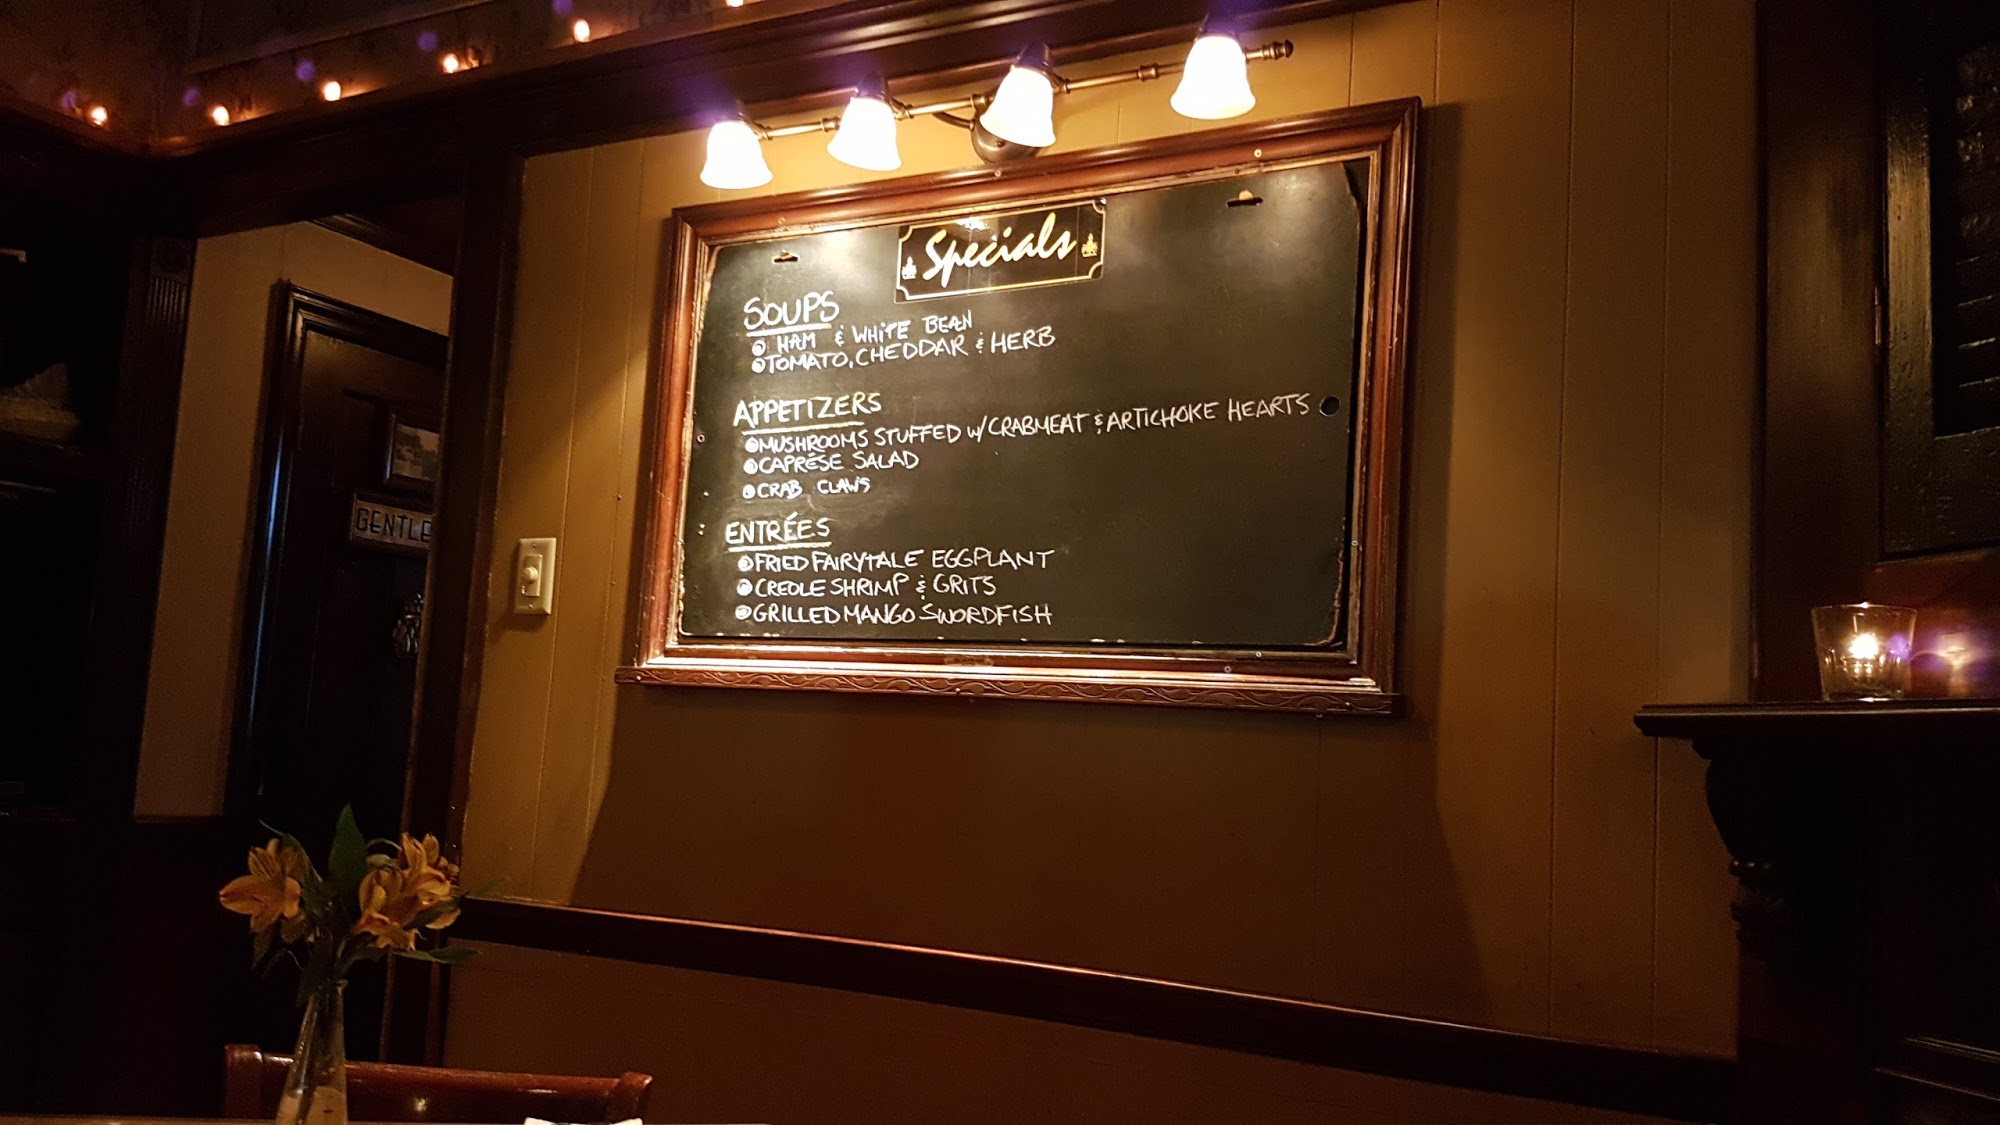 Specials
SOUPS
HAM & WHITE BEAN
TOMATO, CHEDDAR & HERB
APPETIZERS
MUSHROOMS STUFFED W/ CRABMEAT & ARTICHOKE HEARTS
CAPRÉSE SALAD
CRAB CLAWS
ENTRÉES
FRIED FAIRYTALE EGGPLANT
CREOLE SHRIMP & GRITS
GRILLED MANGO SWORDFISH
GENTLE